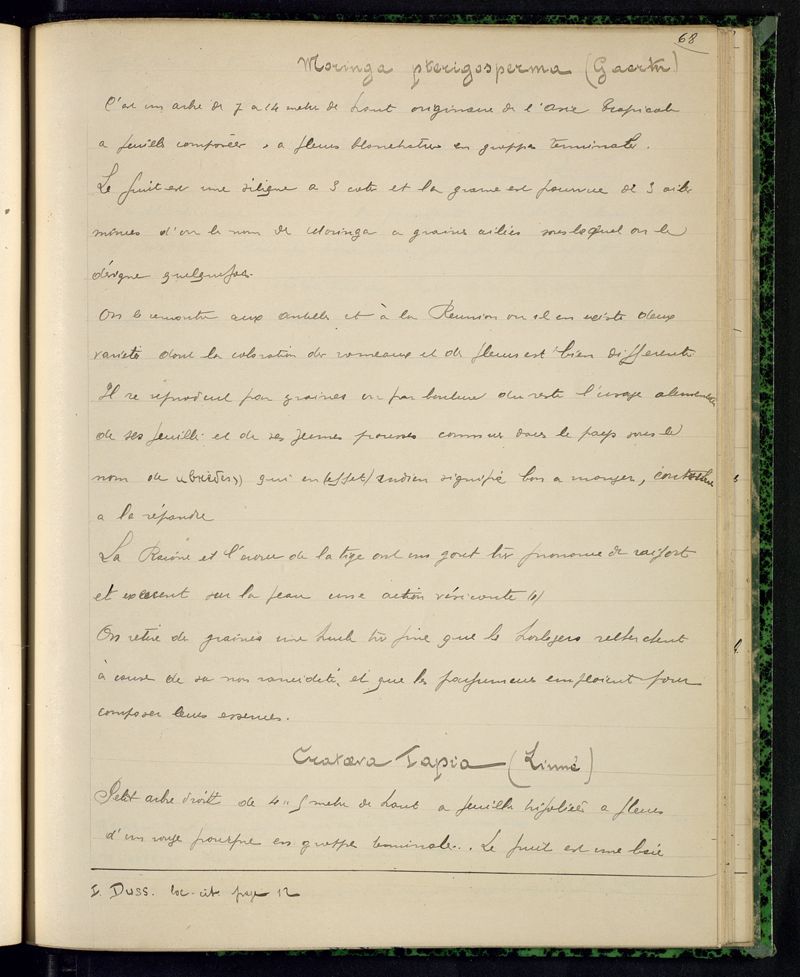 68
Moringa pterigosperma (Gaertn)
C'est un arbre de 7 a 14 metre de haut originaire de l'asie tropicale
a feuille composées, a fleurs blanchatres en grappes terminales.
Le fruit est une silique a 3 cote et la graine est pourvue de 3 ailes
minces d'ou le nom de Moringa a graines ailées sous lequel on le
désigne quelquefois.
On le rencontre aux antilles et à la Reunion ou il en existe deux
varietés dont la coloration des rameaux et de fleurs est bien differente
Il se reproduit par graines ou par bouture du reste l'usage alimentaire
de ses feuilles et de ses jeunes pousses connues dans le pays sous le
nom de «brèdes» qui en (effet) indien signifie bon a manger, contribue
a le répandre
La Racine et l'ecorce de la tige ont un gout trés prononcé de raifort
et exercent sur la peau une action vésicante (1)
On retire de graines une huile trés fine que les horlogers recherchent
à cause de sa non rancidité, et que les parfumeurs emploient pour
composer leurs essences.
Crataeva Tapia (Linné)
Petit arbre droit de 4 a 5 metre de haut a feuilles trifoliées a fleurs
d'un rouge pourpre en grappe terminale.. Le fruit est une baie
1. Duss. loc. cit. page 12